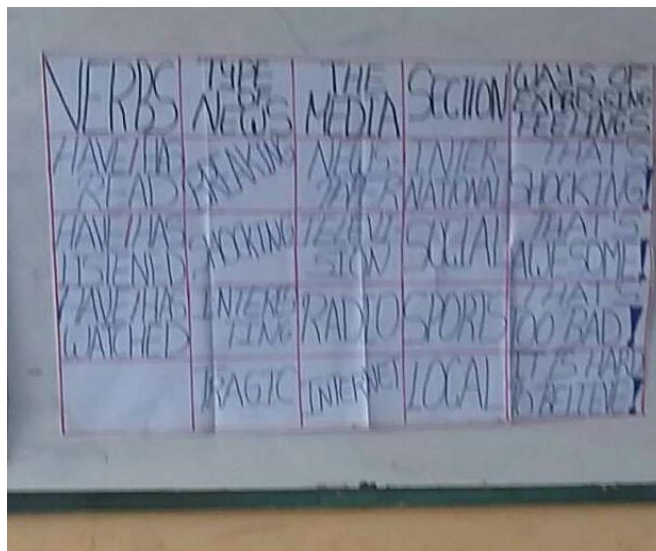 VERBS
TYPE
OF
NEWS
THE
MEDIA
SECTION
WAYS OF
EXPRESSING
FEELINGS
HAVE/HA
READ
BREAKING
NEWS
INTER
NATIONAL
THAT'S
SHOCKING!
HAVE/HAS
LISTENED
SHOCKING
TELEVI
SION
SOCIAL
THAT'S
AWESOME!
HAVE/HAS
WATCHED
INTERES
TING
RADIO
SPORTS
THAT'S
TOO BAD!
TRAGIC
INTERNET
LOCAL
IT IS HARD
TO BELIEVE!